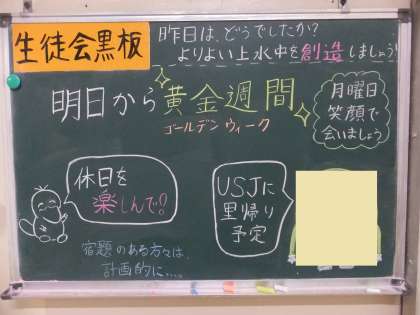 生徒会黒板
昨日は、どうでしたか?
よりよい上水中を創造しましょう!
明日から黄金週間
ゴールデンウィーク
月曜日
笑顔で
会いましょう
休日を
楽しんで?
USJに
里帰り
予定
宿題のある方々は、
計画的に....